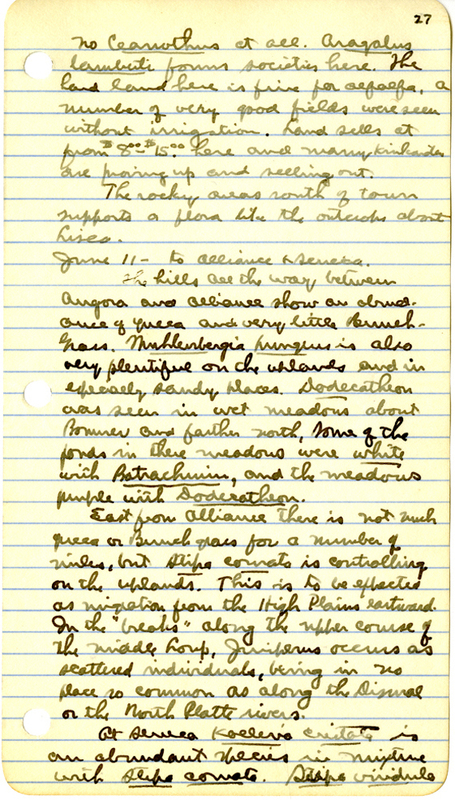 27
no Ceanothus at all. Aragalus
lamberti forms societies here. The
hard land here is fine for alfalfa, a
number of very good fields were seen
without irrigation. Land sells at
from $8.00 - $15.00 here and many Kinkaiders
are proving up and selling out.
The rocky areas south of town
supports a flora like the outcrops about
Lisco.
June 11 - to Alliance & Seneca.
The hills all the way between
Angora and Alliance show an abund-
ance of yucca and very little Bunch-
grass. Muhlenbergia pungens is also
very plentiful on the uplands and in
especially sandy places. Dodecatheon
was seen in wet meadows about
Bonner and farther north, some of the
ponds in these meadows were white
with Batrachium, and the meadows
purple with Dodecatheon.
East from Alliance there is not much
yucca or Bunch grass for a number of
miles, but Stipa comata is controlling
on the uplands. This is to be expected
as migration from the High Plains eastward.
In the "breaks" along the upper course of
the Middle Loup, Juniperus occurs as
scattered individuals, being in no
place so common as along the Dismal
or the North Platte rivers.
At Seneca Koeleria cristata is
an abundant species in mixture
with Stipa comata. Stipa viridula